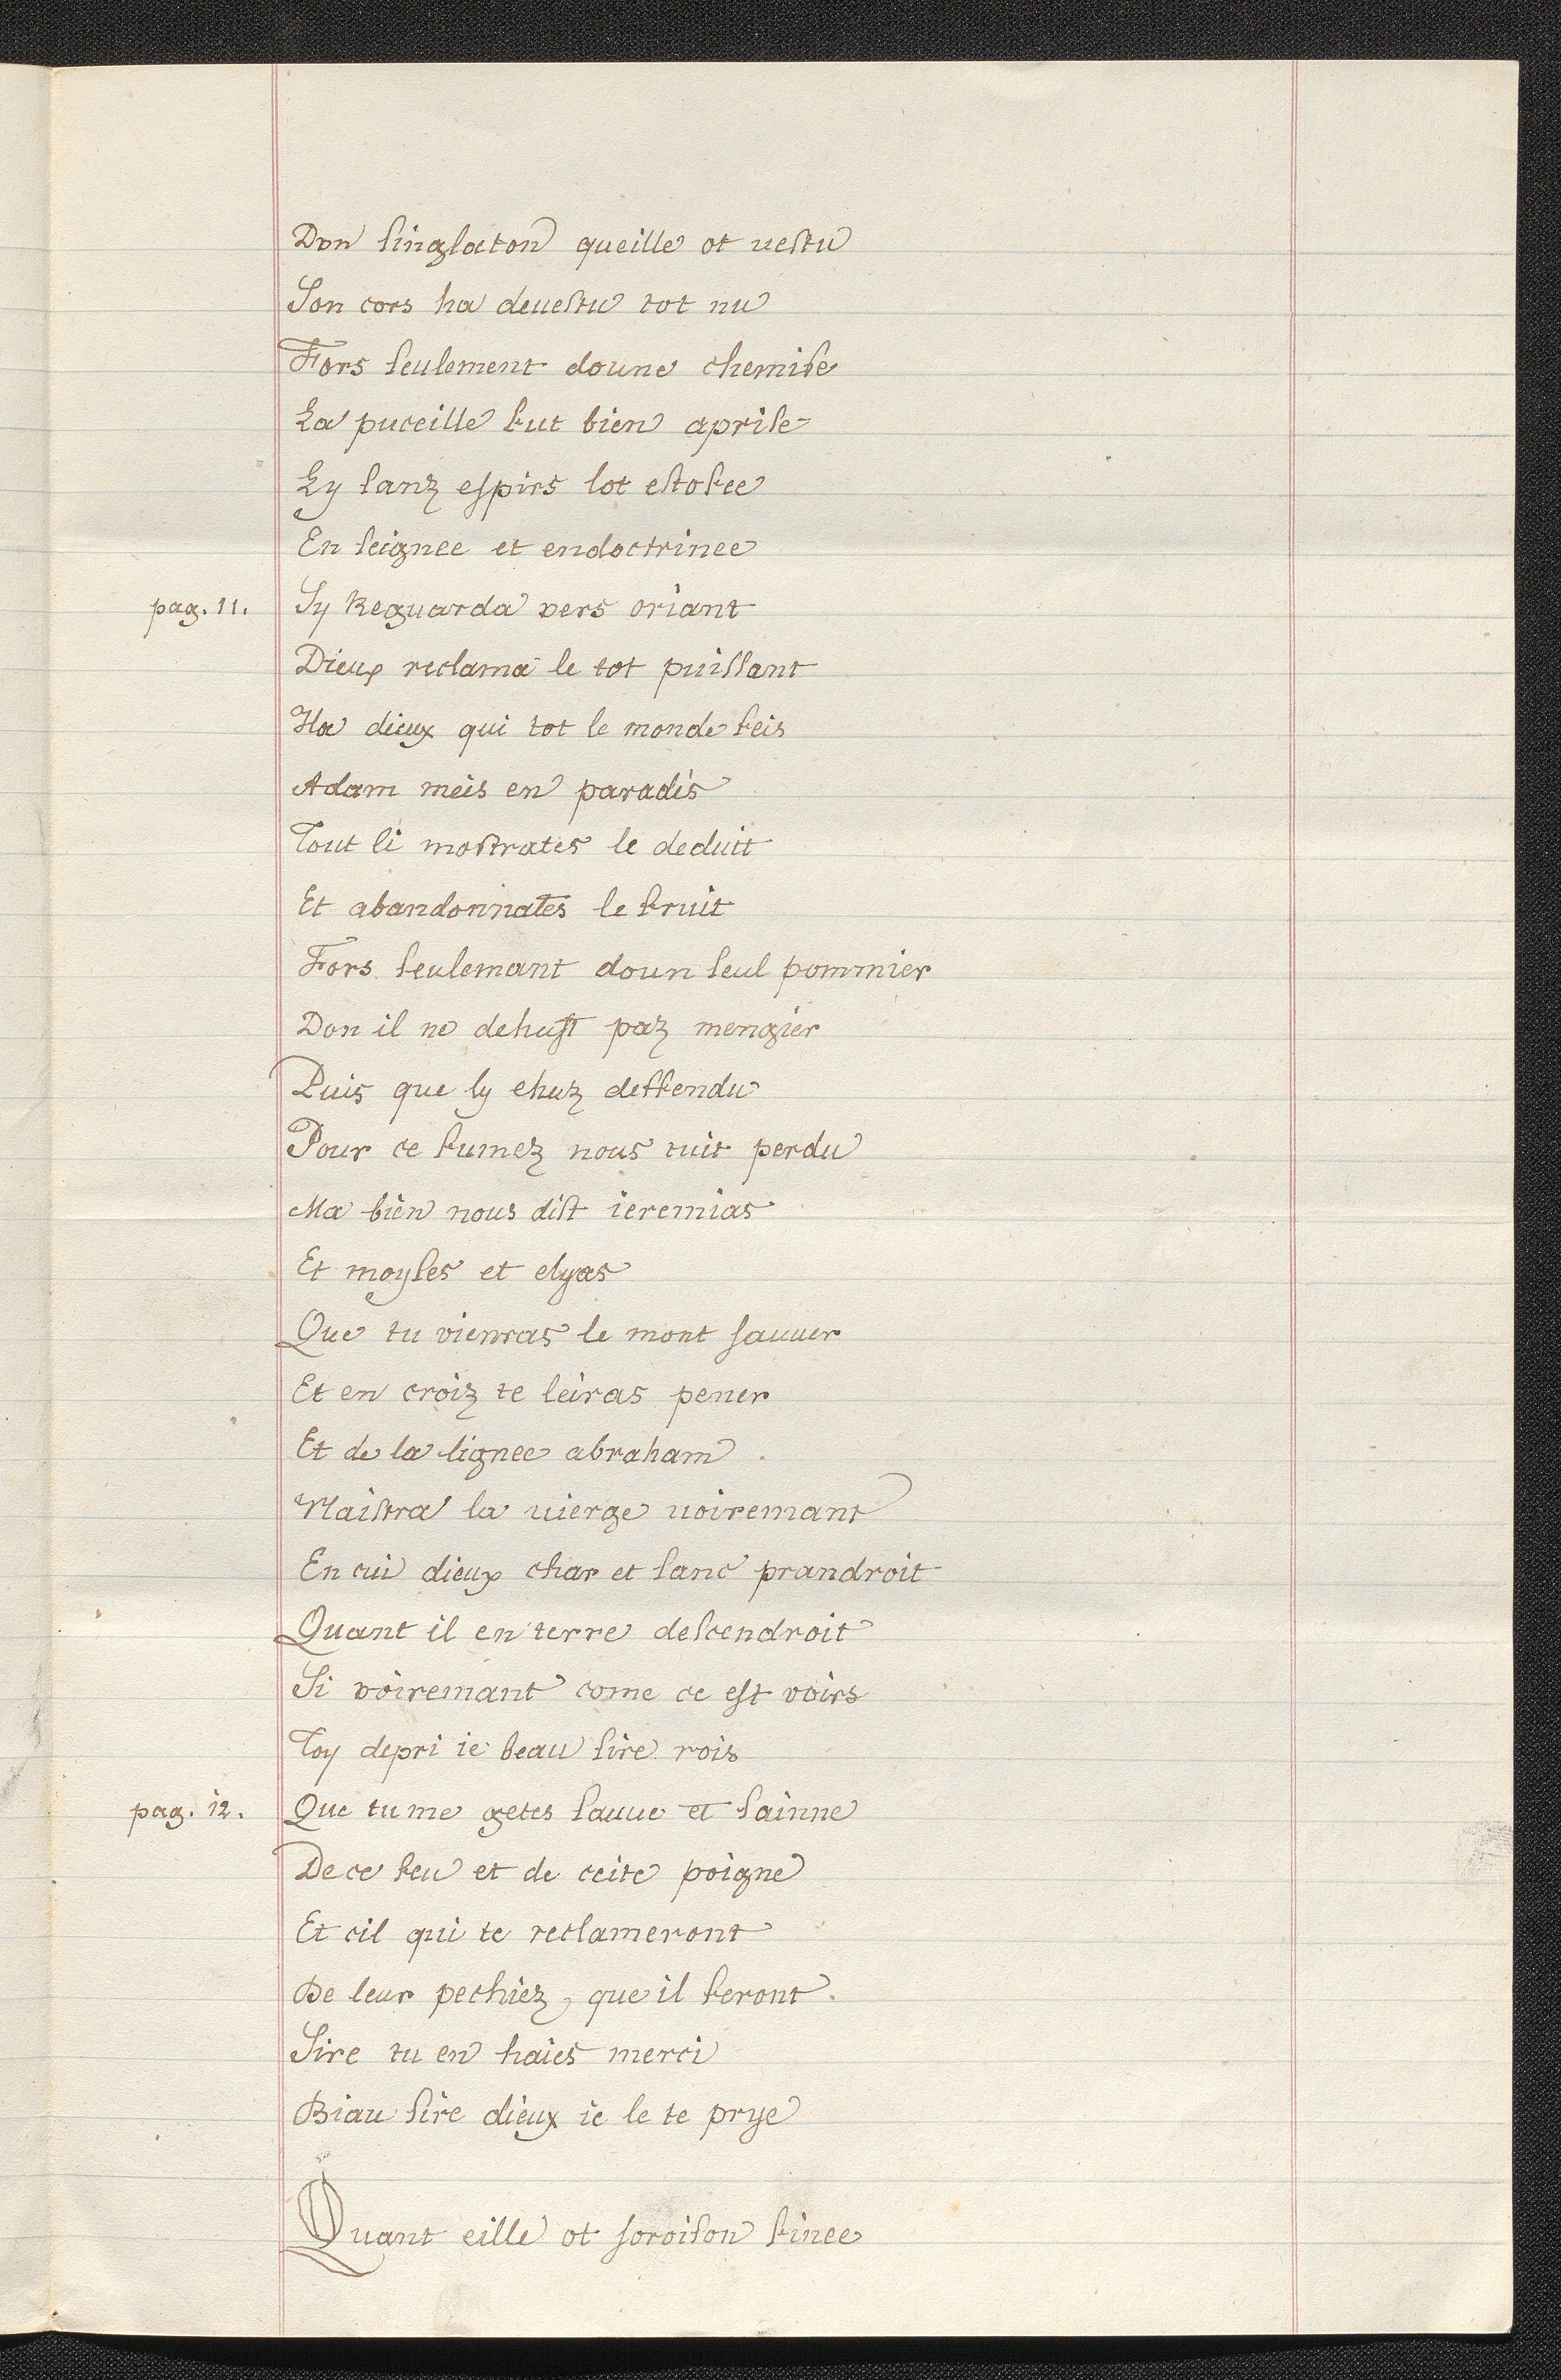 Don singlaton queille ot uestu
Son cors ha deuestu tot nu
Fors seulement doune chemise
La puceille fut bien aprise
Ly sanz espirs lot estofee
En seignee et endoctrinee
pag. 11. Sy Reguarda vers oriant
Dieux reclama le tot puissant
Ha dieux qui tot le monde feis
Adam meis en paradis
Tout li mostrates le deduit
Et abandonnates le fruit
Fors seulemant doun seul pommier
Don il ne dehust paz mengier
Puis que ly ehuz deffendu
Pour ce fumez nous tuit perdu
Ma bien nous dist ieremias
Et moyses et elyas
Que tu vienras le mont sauuer
Et en croiz te leiras pener
Et de la lignee abraham
Naistra la uierge uoiremant
En cui dieux char et sanc prandroit
Quant il en terre descendroit
Si voiremant come ce est voirs
Toy depri ie beau sire rois
pag. 12. Que tu me getes sauue et sainne
De ce feu et de ceite poigne
Et cil qui te reclameront
De leur pechiez, que il feront.
Sire tu en haies merci
Biau sire dieux ie le te prye
Quant eille ot soroison finee